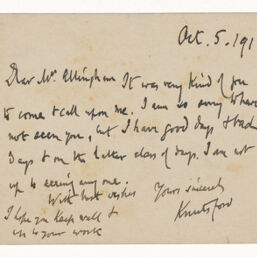 Oct. 5. 191
Dear Mr. Allingham It was very kind of you
to come & call upon me. I am so sorry to have
not seen you, but I have good days & bad
days & on the latter class of days. I am not
up to seeing any one.
With best wishes
Yours sincerely
Knutsford
I hope you keep well &
up to your work